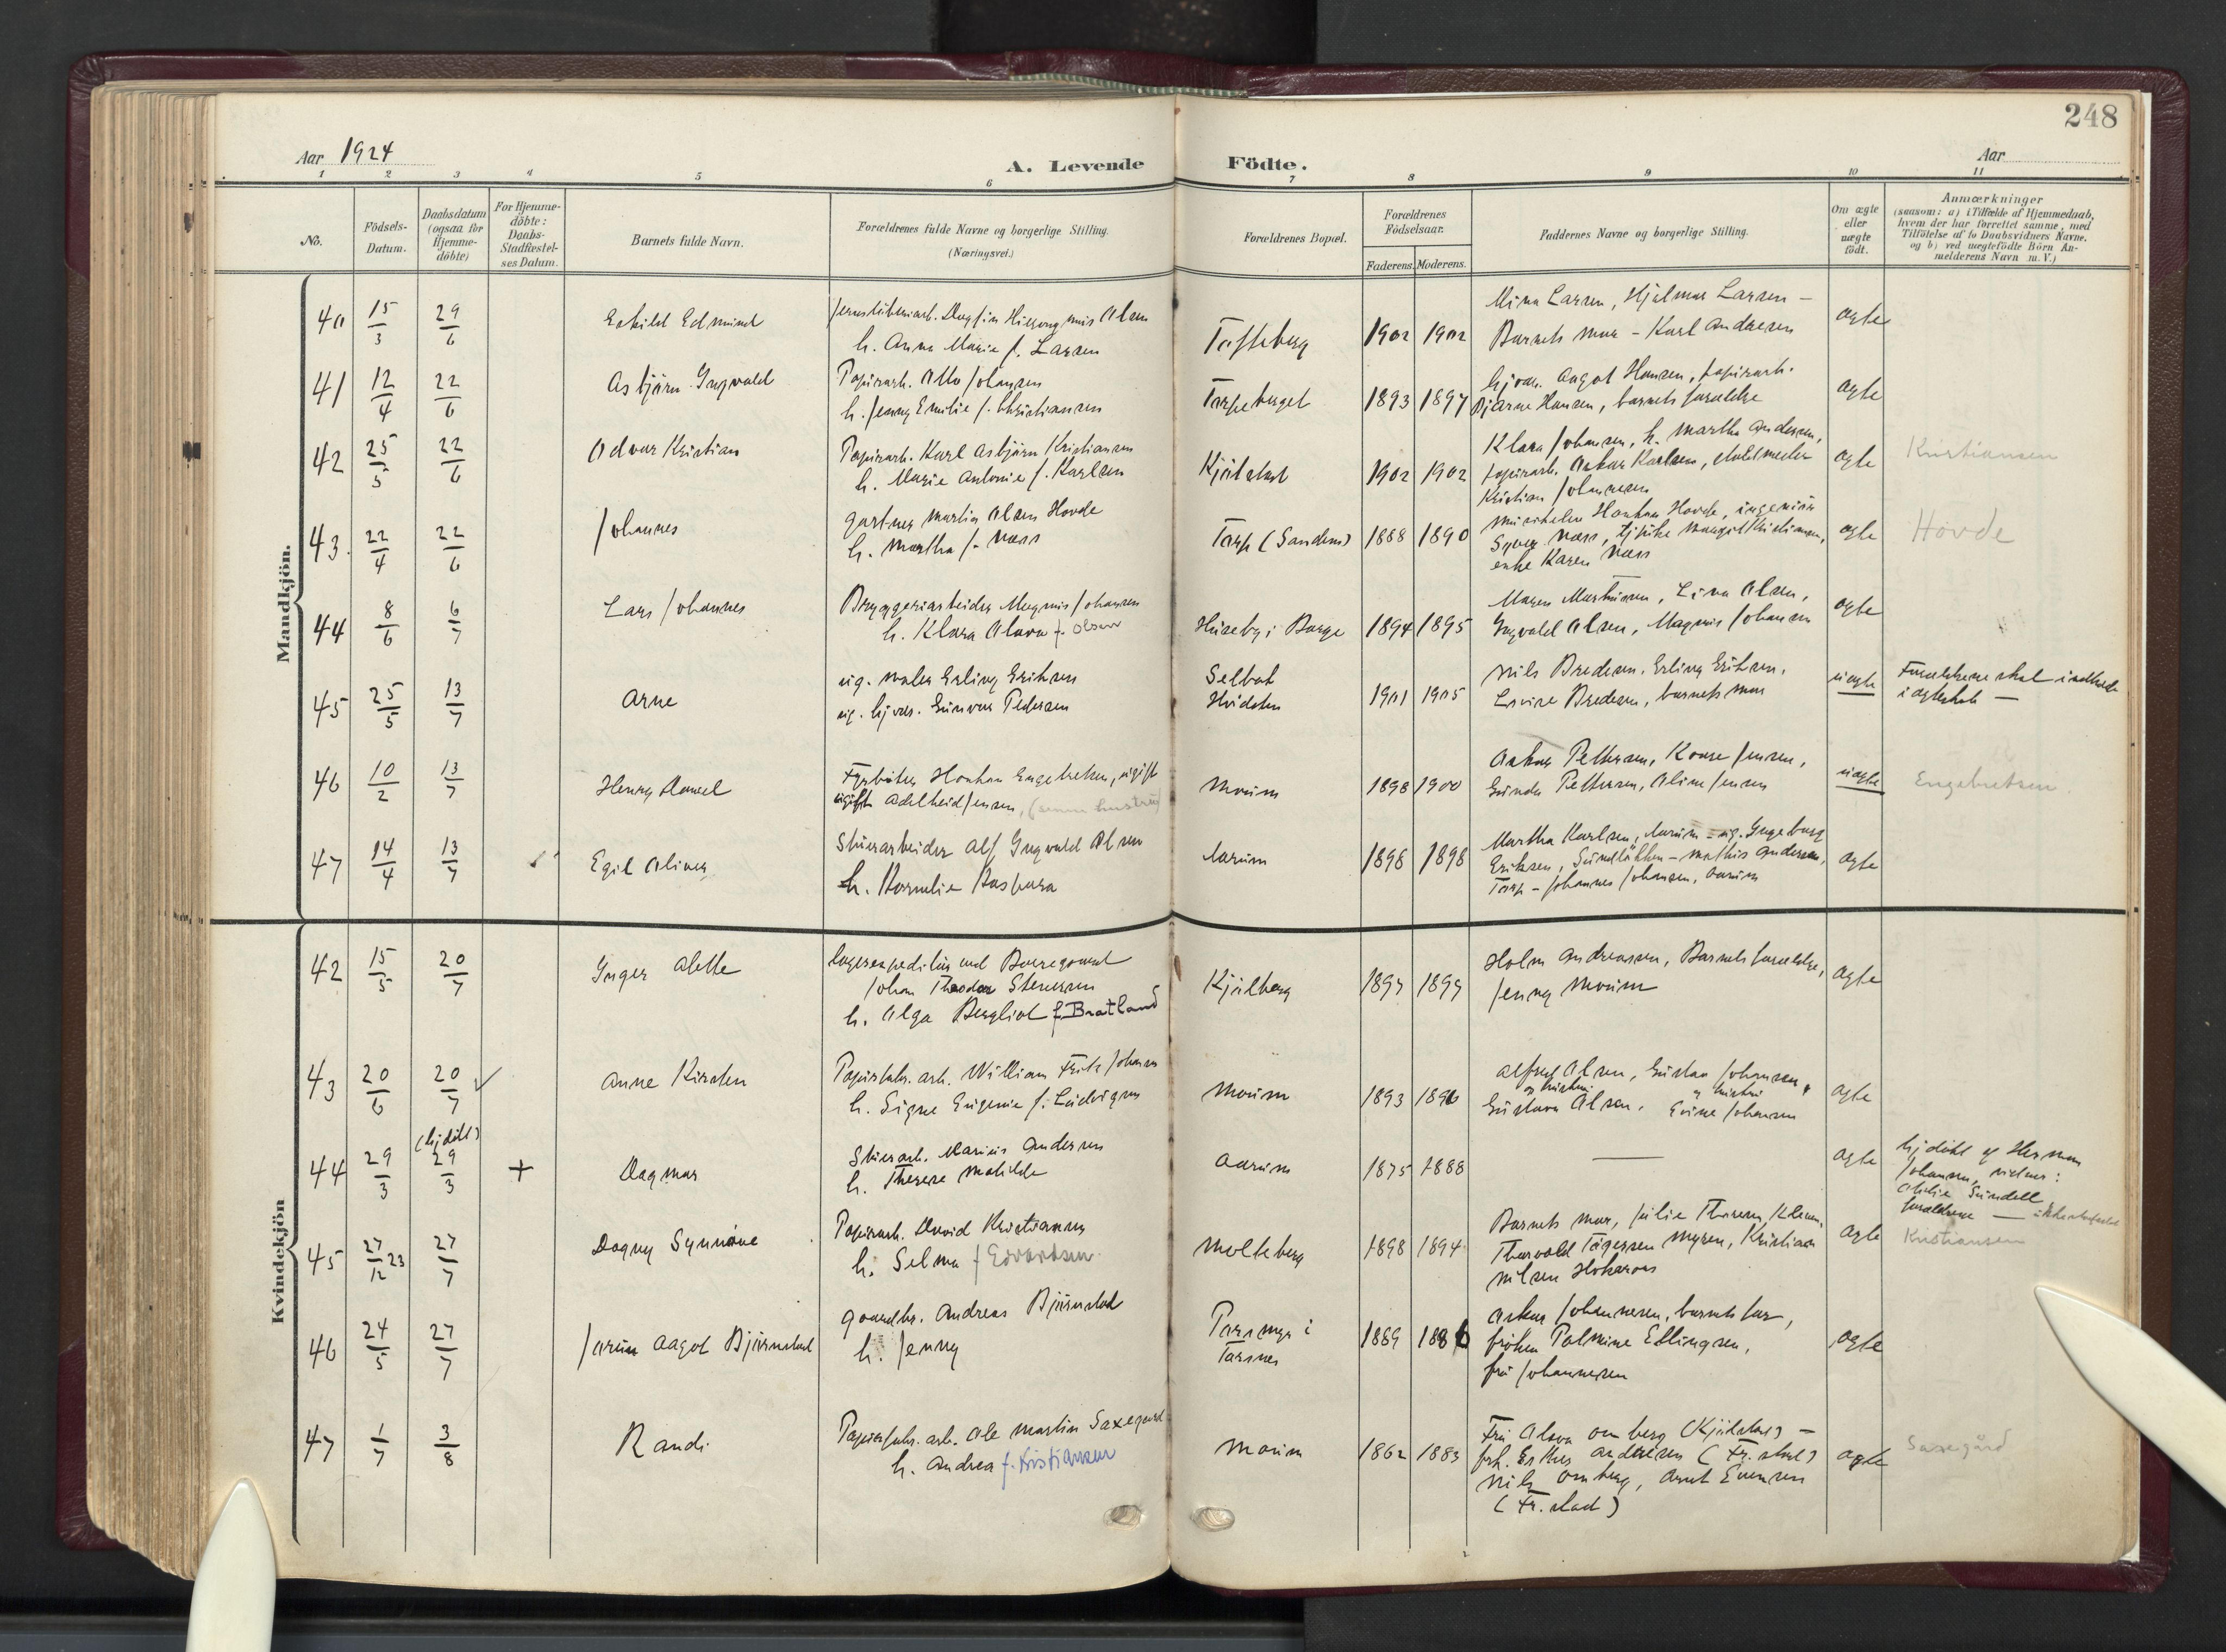 248
Aar 1924
A. Levende Födte.
Aar
1 2 3 4 5 6 7 8 9 10 11
No.
Födsels-
Datum.
Daabsdatum
(ogsaa for
Hjemme-
döbte)
For Hjemme-
döbte:
Daabs-
Stadfæstel-
ses Datum.
Barnets fulde Navn.
Forældrenes fulde Navne og borgerlige Stilling.
(Næringsvei.)
Forældrenes Bopæl.
Forældrenes
Födselsaar.
Faderens. Moderens.
Faddernes Navne og borgerlige Stilling.
Om ægte
eller
uægte
födt.
Anmærkninger
(saasom: a) i Tilfælde af Hjemmedaab,
hvem der har forrettet samme, med
Tilföielse af to Daabsvidners Navne,
og b) ved uægtefödte Börn An-
melderens Navn m. V.)
Mandkjön.
40 15/3 29/6 Eskild Edmund
h. Anna Marie f. Larsen
1902 1902
Mina Larsen, Hjalmar Larsen –
Barnets mor – Karl Andresen
ægte
41 12/4 22/6 Asbjörn Ingvald
Papirarb. Otto Johansen
h. Jenny Emilie f. Christiansen
Torpeberget 1893 1897
hjvær. Aagot Hansen, papirarb.
Bjarne Hansen, barnets forældre
ægte
42 25/5 22/6 Odvar Kristian
Papirarb. Karl Asbjörn Kristiansen
h. Marie Antonie f. Karlsen
Kjölstad 1902 1902
Klara Johansen, h. Martha Andersen,
papirarb. Oskar Karlsen,
Kristian Johannesen
ægte
Kristiansen
43. 22/4 22/6 Johannes
Gartner Martin Olsen Hovde
h. Martha f. Næss
Torp (Sandem) 1888 1890
Haakon Hovde, ingeniör
Syver Næss, Margit Kristiansen,
enke Karen Næss
ægte
Hovde
44 8/6 6/7 Lars Johannes
Bryggeriarbeider Magnus Johansen
h. Klara Olava f. Olsen
Huseby i Borge 1894 1895
Maren Martinsen, Lina Olsen,
Ingvald Olsen, Magnus Johansen
ægte
45 25/5 13/7 Arne
ug. maler Erling Eriksen
ug. hjvær. Gunvor Pedersen
Selbak
Hvidsten
1901 1905
Nils Bredesen, Erling Eriksen,
Lovise Bredesen, barnets mor
uægte
Forældrene skal indtræde
i ægteskab —
46 10/2 13/7 Henry Daniel
Fyrböter Haakon Engebretsen, ugift
ugift Adelheid Jensen, (senere hustru)
Moum 1898 1900
Oskar Pettersen, Kaare Jensen,
Gunda Pettersen, Oline Jensen
uægte
Engebretsen.
47 14/4 13/7 Egil Oliver
Stuerarbeider Alf Ingvald Olsen
h. Kornelie Kaspara
Aarum 1898 1898
Martha Karlsen, Aarum – ug. Ingeborg
Eriksen, Sundlökken – Mathis Andersen,
Torp – Johannes Johansen, Aarum
ægte
Kvindekjön
42 15/5 20/7 Inger Alette
Lagerexpeditör ved Borregaard
Johan Theodor Stenersen
h. Olga Bergliot f. Bratland
Kjölberg 1897 1899
Holm Andreassen, Barnets forældre,
Jenny Moum
ægte
43 20/6 20/7 Anne Kirsten
Papirfabr. arb. William Fritz Johansen
h. Signe Eugenie f. Ludvigsen
Moum 1893 1896
Alfred Olsen, Gustav Johansen,
og hustru og hustru
Gustava Olsen, Evine Johansen
ægte
(hj.döbt)
44 29/3 29/3 + Dagmar
Stuerarb. Marius Andersen
h. Therese Mathilde
Aarum 1875 1888
—
ægte
hj.döbt af Herman
Johansen, vidner:
Sundell,
forældrene —
45 27/12 23 27/7 Dagny Synnöve
Papirarb. David Kristiansen
h. Selma f Edvardsen
Molteberg 1898 1894
Barnets mor, Julie Thoresen,
Thorvald Myren, Kristian
Nilsen
ægte
Kristiansen
46 24/5 27/7 Jorun Aagot Björnstad
gaardbr. Andreas Björnstad
h. Jenny
Torsnes
1889 1886
Oskar Johannesen, barnets far,
fröken Palmine Ellingsen,
fru Johannesen
ægte
47 1/7 3/8 Randi
Papirfabr. arb. Ole Martin Saxegaard
h. Andrea f. Kristiansen
Moum 1862 1883
Fru Olava Omberg (Kjölstad) –
frk. Esther Andersen (Fr.stad)
Nils Omberg, Arnt Evensen
(Fr.stad)
ægte
Saxegård